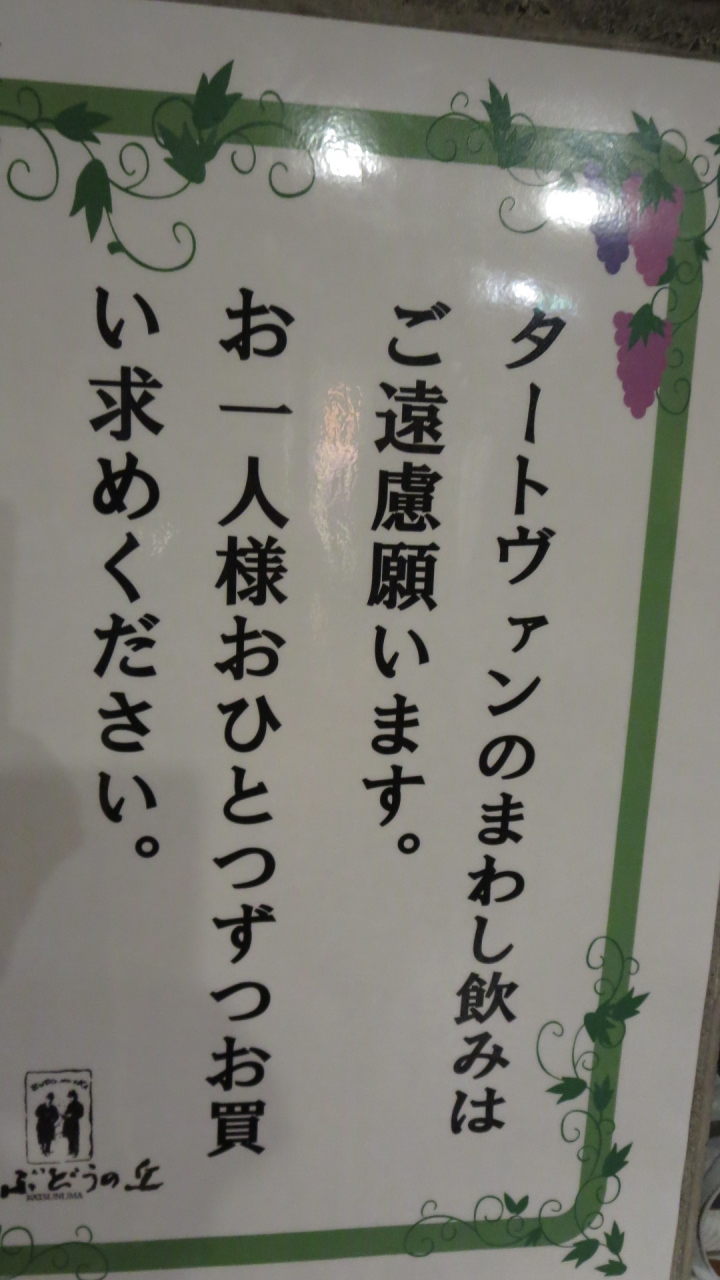 タートヴァンのまわし飲みは
ご遠慮願います。
お一人様おひとつずつお買
い求めください。
ぶどうの丘
KATSUNUMA